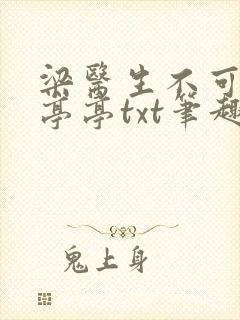 梁醫生不可
亭亭txt筆趣
鬼上身